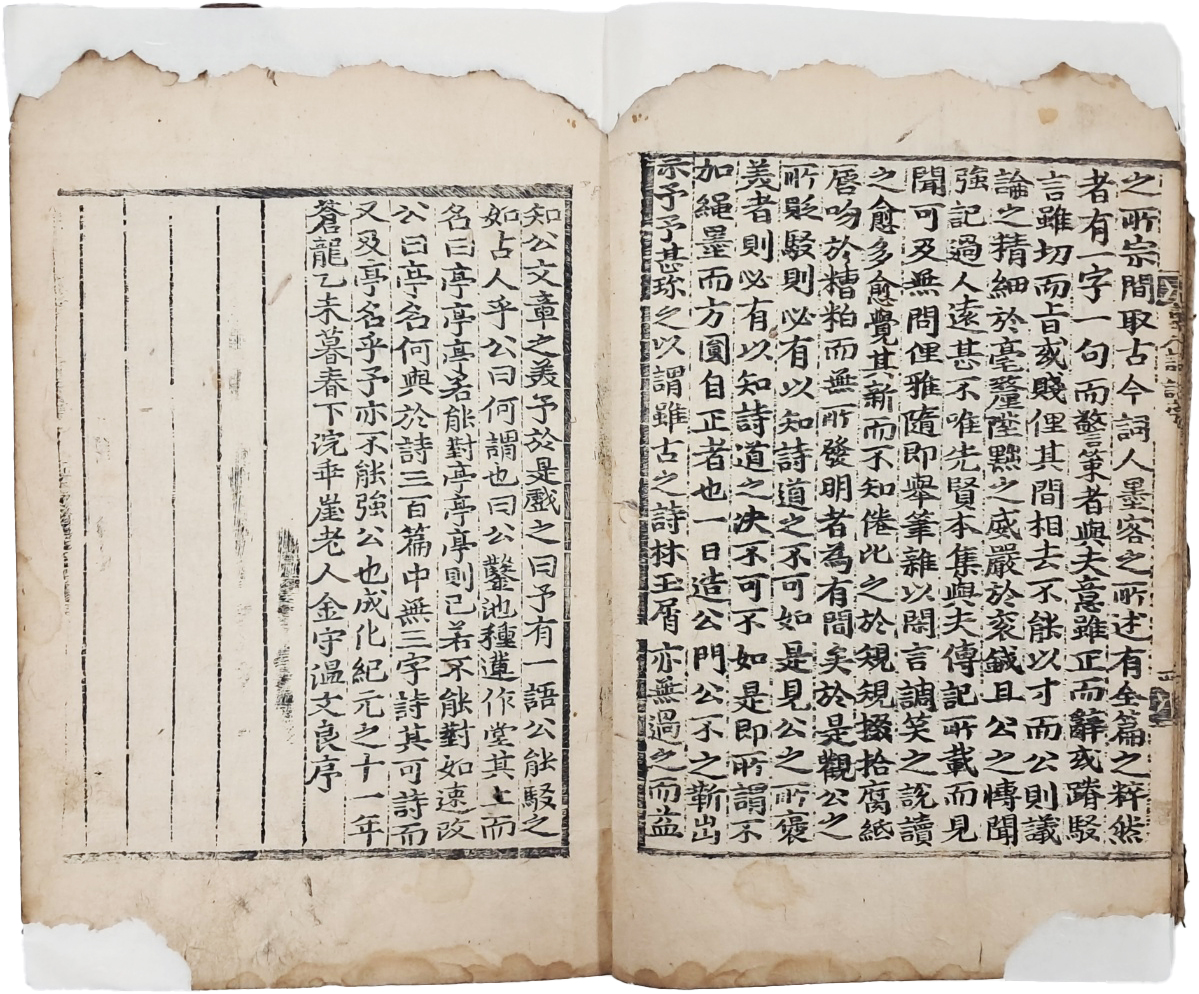 之所宗間取古今詞人墨客之所述有全篇之粹然
者有一字一句而警策者與夫意雖正而辭或踳駁
言雖切而旨或賤俚其間相去不能以寸而公則議
論之精細於毫釐陞黜之威嚴於袞鉞且公之愽聞
強記過人遠甚不唯先賢本集與夫傳記所載而見
聞可及無問俚雅隨即舉筆雜以閑言調笑之說讀
之愈多愈覺其新而不知倦比之於規規掇拾腐紙
唇吻於糟粕而無所發明者為有間矣於是觀公之
所貶駁則必有以知詩道之不可如是見公之所褒
美者則必有以知詩道之决不可不如是即所謂不
加繩墨而方圓自正者也一日造公門公不之靳出
示予予甚珎之以謂雖古之詩林玉屑亦無過之而益
知公文章之美予於是戲之曰予有一語公能駁之
如古人乎公曰何謂也曰公鑿池種蓮作堂其上而
名曰亭亭亭名能對亭亭亭則已若不能對如速改
公曰亭名何與於詩三百篇中無三字詩其可詩而
又及亭名乎予亦不能強公也成化紀元之十一年
蒼龍乙未暮春下浣乖崖老人金守溫文良序